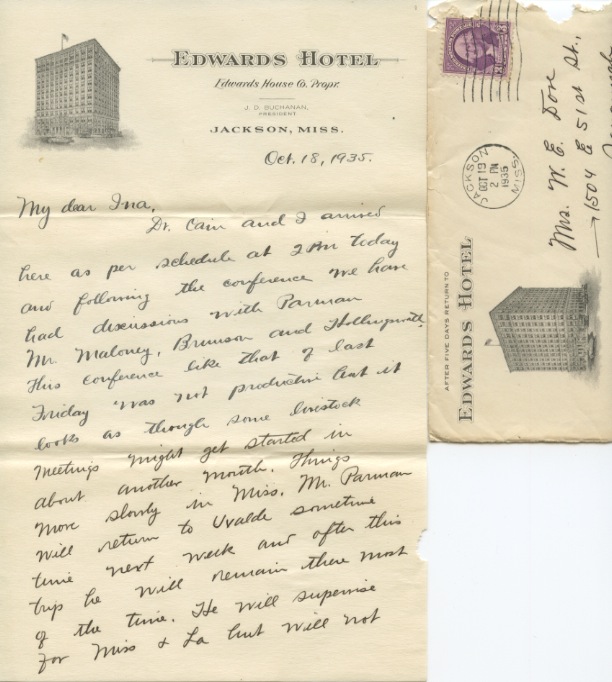 EDWARDS HOTEL
Edwards House Co. Propr.
J. D. BUCHANAN,
PRESIDENT
JACKSON, MISS.
Oct. 18, 1935.
My dear Ina,
Dr. Cain and I arrived
here as per schedule at 2 PM today
and following the conference we have
had discussions with Parman
Mr. Maloney, Brunson and
This conference like that of last
Friday was not productive but it
looks as though some livestock
meetings might get started in
about another month. Things
move slowly in Miss. Mr. Parman
will return to Uvalde sometime
time next week and after this
trip he will remain there most
of the time. He will supervise
for Miss & La but will not
3¢
JACKSON
OCT 19
2 PM
1935
MISS.
Mrs. W. E. Dove
1504 E 51st St.,
AFTER FIVE DAYS RETURN TO
EDWARDS HOTEL